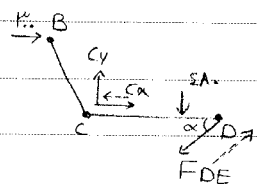 B
Cy
Cx
C
α
D
FDE